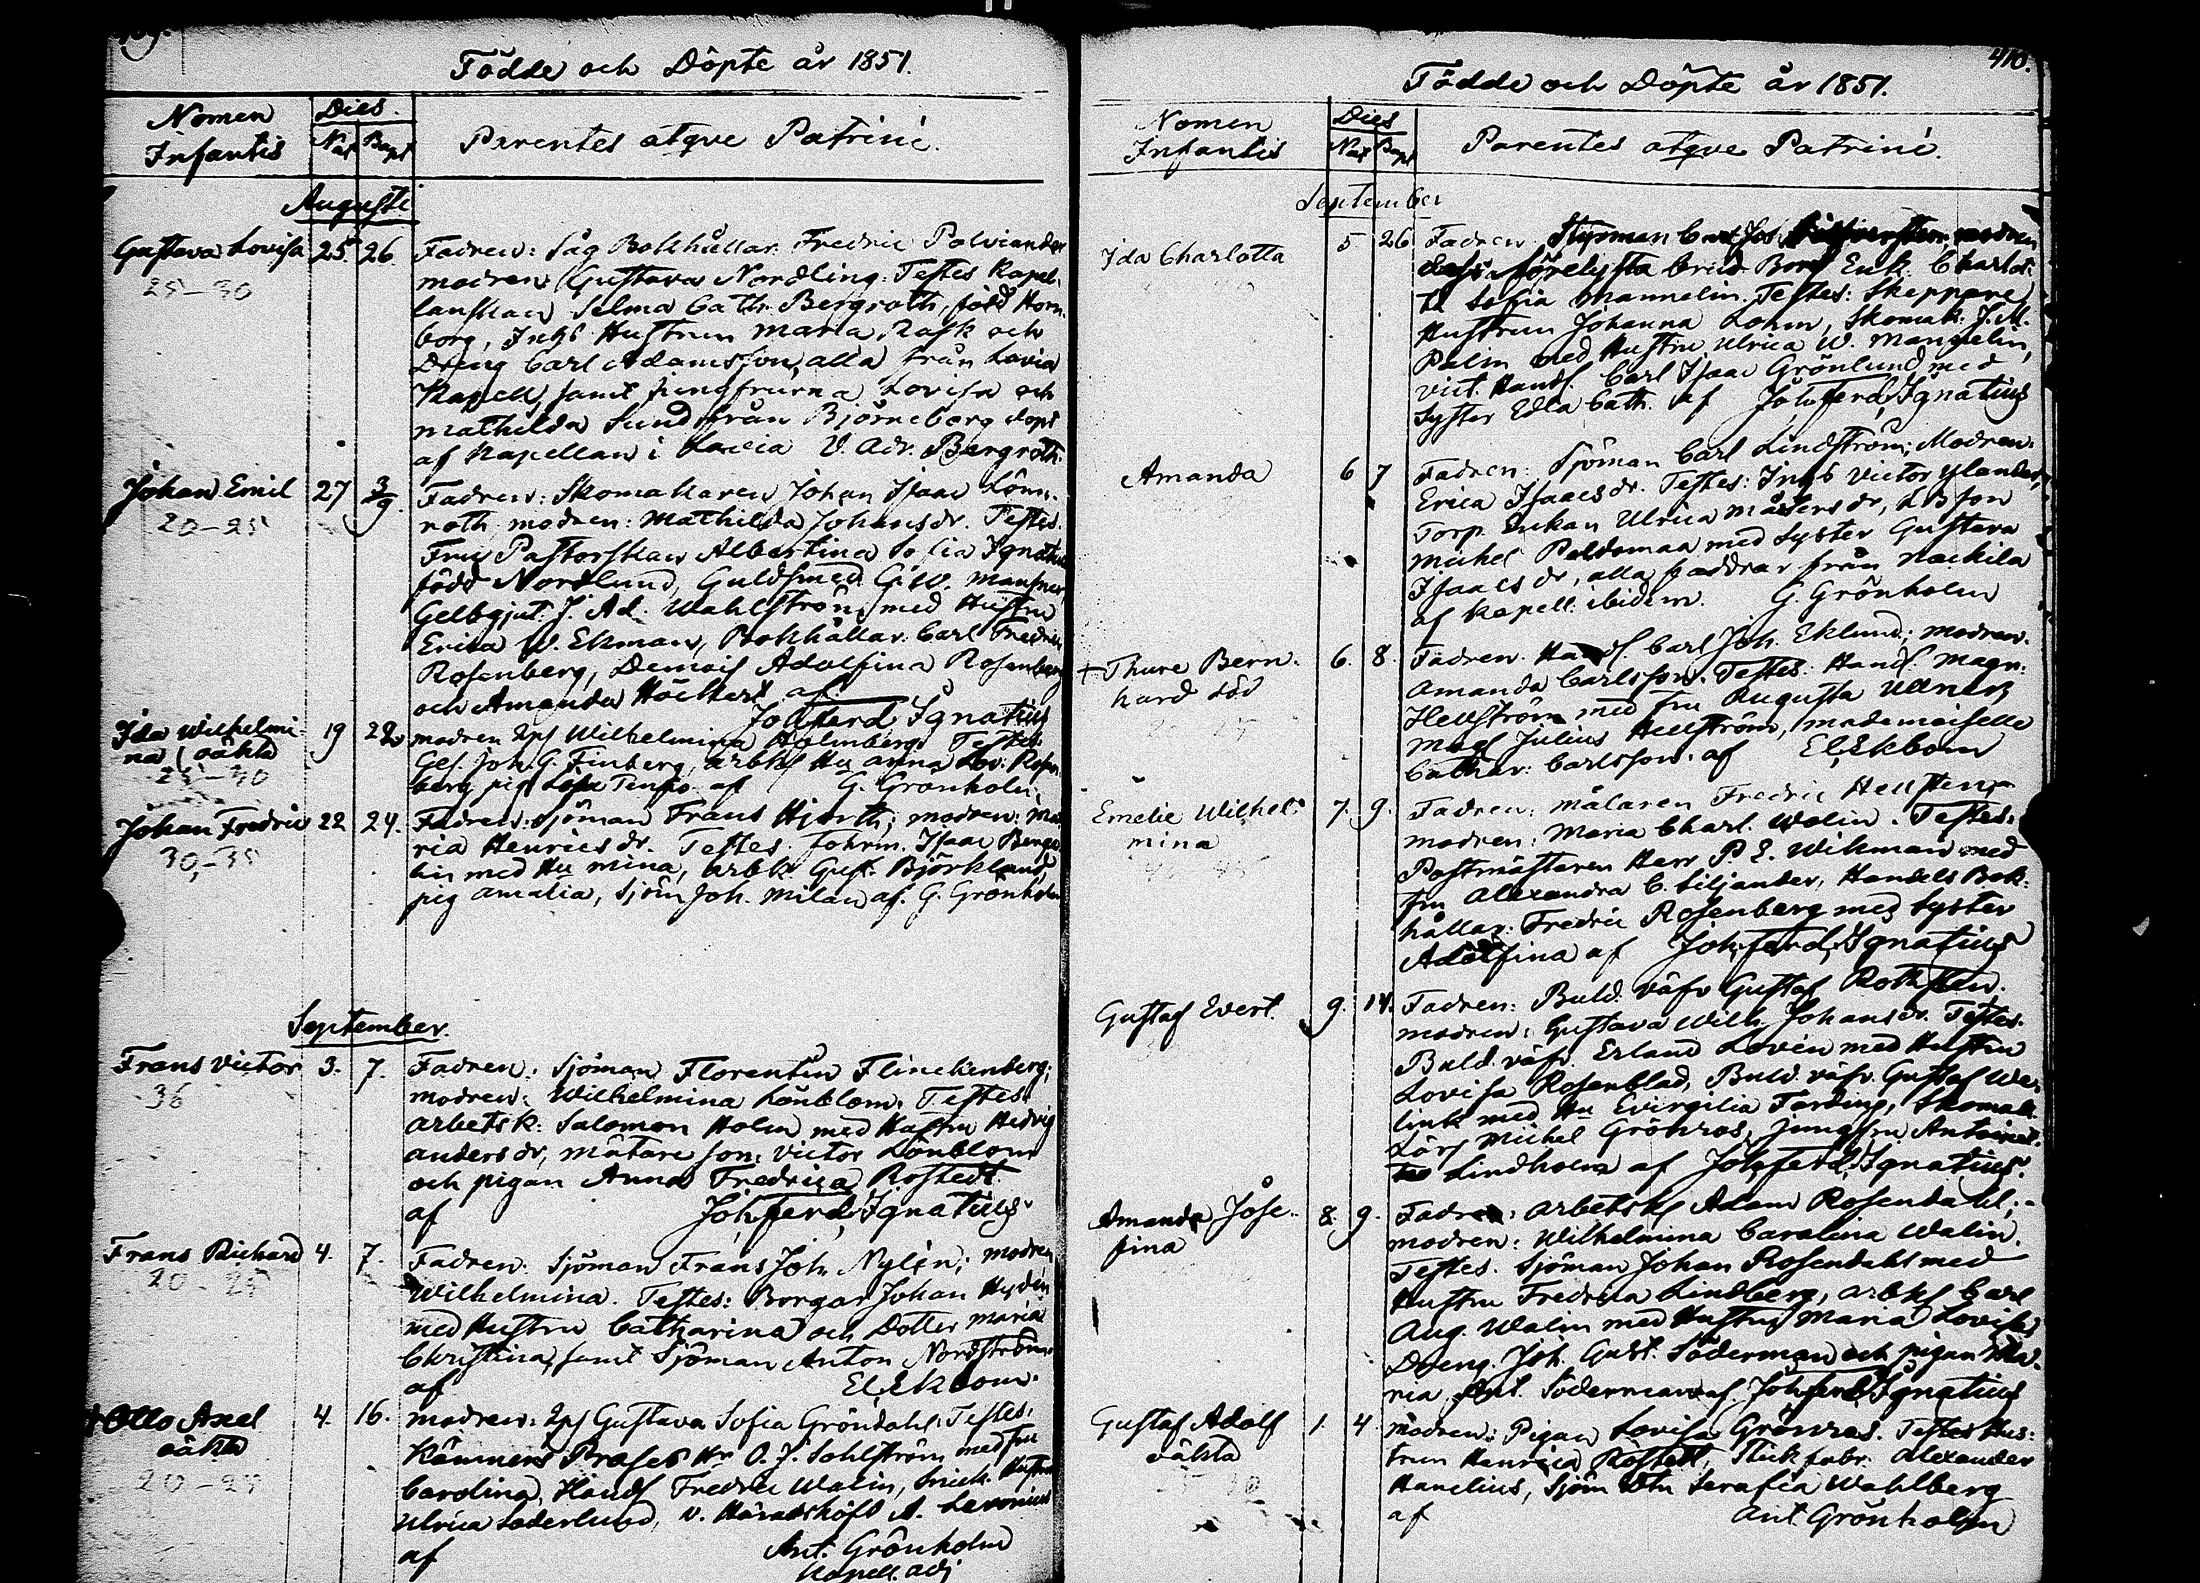 Födde och Döpte år 1851.
Nomen Infantis
Dies.
Nat Bapt
Parentes atqve Patrini.
Augusti
Gustava Lovisa 25 26. Fadren: Såg Bokhållar. Fredric Polviander
25-30
modren Gustava Nordling. Testes Kapel-
lanskan Selma Cath. Bergroth, född Horn-
borg, Inhs Hustrun Maria Rask och
Dreng Carl Adamsson, alla från Lavia
Kapell, samt jungfrurna Lovisa och
Mathilda Sund från Björneborg döpt
af Kapellan i Lavia V. Adr. Bergroth.
Johan Emil 27 3/9. Fadren: Skomakaren Johan Isaac Lönn-
20-25
roth modren: Mathilda Johansdr. Testes.
Fru Pastorskan Albertina Sofia Ignatius
född Nordlund, Guldsmed G.W.
Gelbgjut. J. Ad. Wahlström med Hustru
Erica W. Ekman, Bokhållar. Carl Fredric
Rosenberg, Demois Adolfina Rosenberg
och Amanda Höckert af.
Joh Ferd Ignatius
Ida Wilhelmi- 19 22 modren Qps Wilhelmina Holmberg. Testes
na (oäkta
25-30
Ges. Joh. G. Finberg, arbks Hu Anna Lov. Rosen-
berg, pig af G. Grönholm.
Johan Fredric 22 24. Fadren: Sjöman Frans Hjorth; modren: Ma-
30-35
ria Henricsdr. Testes. Isaac
lin med Hu Mina, arbk Gust. Björklund,
pig Amalia, Sjöm Joh. Milan af. G. Grönholm
September.
Frans Victor 3. 7. Fadren: Sjöman Florentin Flinckenberg;
36
modren: Wilhelmina Lönblom. Testes.
Arbetsk: Salomon Holm med Hustru Hedvig
Andersdr, Mätare son: Victor Lönblom
och pigan Anna Fredrica Rostedt.
af Joh, ferd, Ignatius.
Frans Richard 4. 7. Fadren: Sjöman Frans Joh. Nylén; modren
20-25
Wilhelmina. Testes: Borgar Johan Hydén
med Hustru Catharina och Dotter Maria
Christina, samt Sjöman Anton Nordström.
af El, Ekbom.
Otto Axel 4. 16. modren: Qps Gustava Sofia Gröndahl. Testes:
oäkta
20-25
Kämners Præses Hr O. J. Sohlström med fru
Carolina, Hands Fredric Walin, Hustru
Ulrica Söderlund, v. Häradshöfd A. Levonius
af Ant. Grönholm
Kapell. adj
410.
Födde och Döpte år 1851.
Nomen Infantis
Dies
Nat Bapt
Parentes atqve Patrini.
September
Ida Charlotta 5 26 Fadren. Styrman Carl Joh modren
Enk. Charlot-
ta Sofia Mannelin. Testes: Skeppare
Hustrun Johanna Lohm, Skomak. J. M.
Palin med Hustru Ulrica W. Mannelin,
vict. Hands. Carl Isaac Grönlund med
Syster Edla Cath. af Joh, ferd, Ignatius
Amanda 6 7 Fadren: Sjöman Carl Lindström; Modren:
Erica Isaacsdr. Testes: Inhs Victor Ylander,
Torp. Enkan Ulrica Mårtensdr, LBson
Michel Peldomaa med Syster Gustava
Isaacsdr, alla faddrar från Nackila
af Kapell. ibidem. G. Grönholm
+ Thure Bern- 6. 8. Fadren. Hands Carl Joh. Eklund; modren.
hard död
Amanda Carlsson. Testes. Hands. Magn.
Hellström med fru Augusta
Mags Julius Hellström, mademoiselle
Cathar. Carlsson. af El, Ekbom
Emelie Wilhel- 7. 9. Fadren: målaren Fredric Hellsten,
mina
modren: Maria Charl. Walin. Testes:
Postmästaren Herr P. E. Wikman med
fru Alexandra C. Siljander, Handels Bok-
hållar: Fredric Rosenberg med Syster
Adolfina af Joh, ferd, Ignatius
Gustaf Evert. 9. 14. Fadren: Buld. väfv Gustaf Rothsten.
modren: Gustava Wilh. Johansdr. Testes.
Buld. väfv. Erland Lovén med Hustru
Lovisa Rosenblad, Buld. väfv. Gustaf We-
link med Hu Evirgilia Tording, Skomak-
Lärl Michel Grönros, Jungfru Antoinet-
te Lindholm af Joh, ferd, Ignatius.
Amanda Jose- 8 9. Fadren: arbetsks Adam Rosendahl;
fina
modren: Wilhelmina Carolina Walin.
Testes. Sjöman Johan Rosendahl med
Hustru Fredrica Lindberg, arbks Carl
Aug. Walin med Hustru Maria Lovisa,
Dreng. Joh. Gust. Söderman och pigan Ma-
ria Söderman af Joh ferd Ignatius
Gustaf Adolf 1. 4. modren: Pigan Lovisa Grönros. Testes Hus-
oäkta
trun Henrica Rostedt, Alexander
Hanelius, Sjöm Dtn Serafia Wahlberg
af Ant. Grönholm